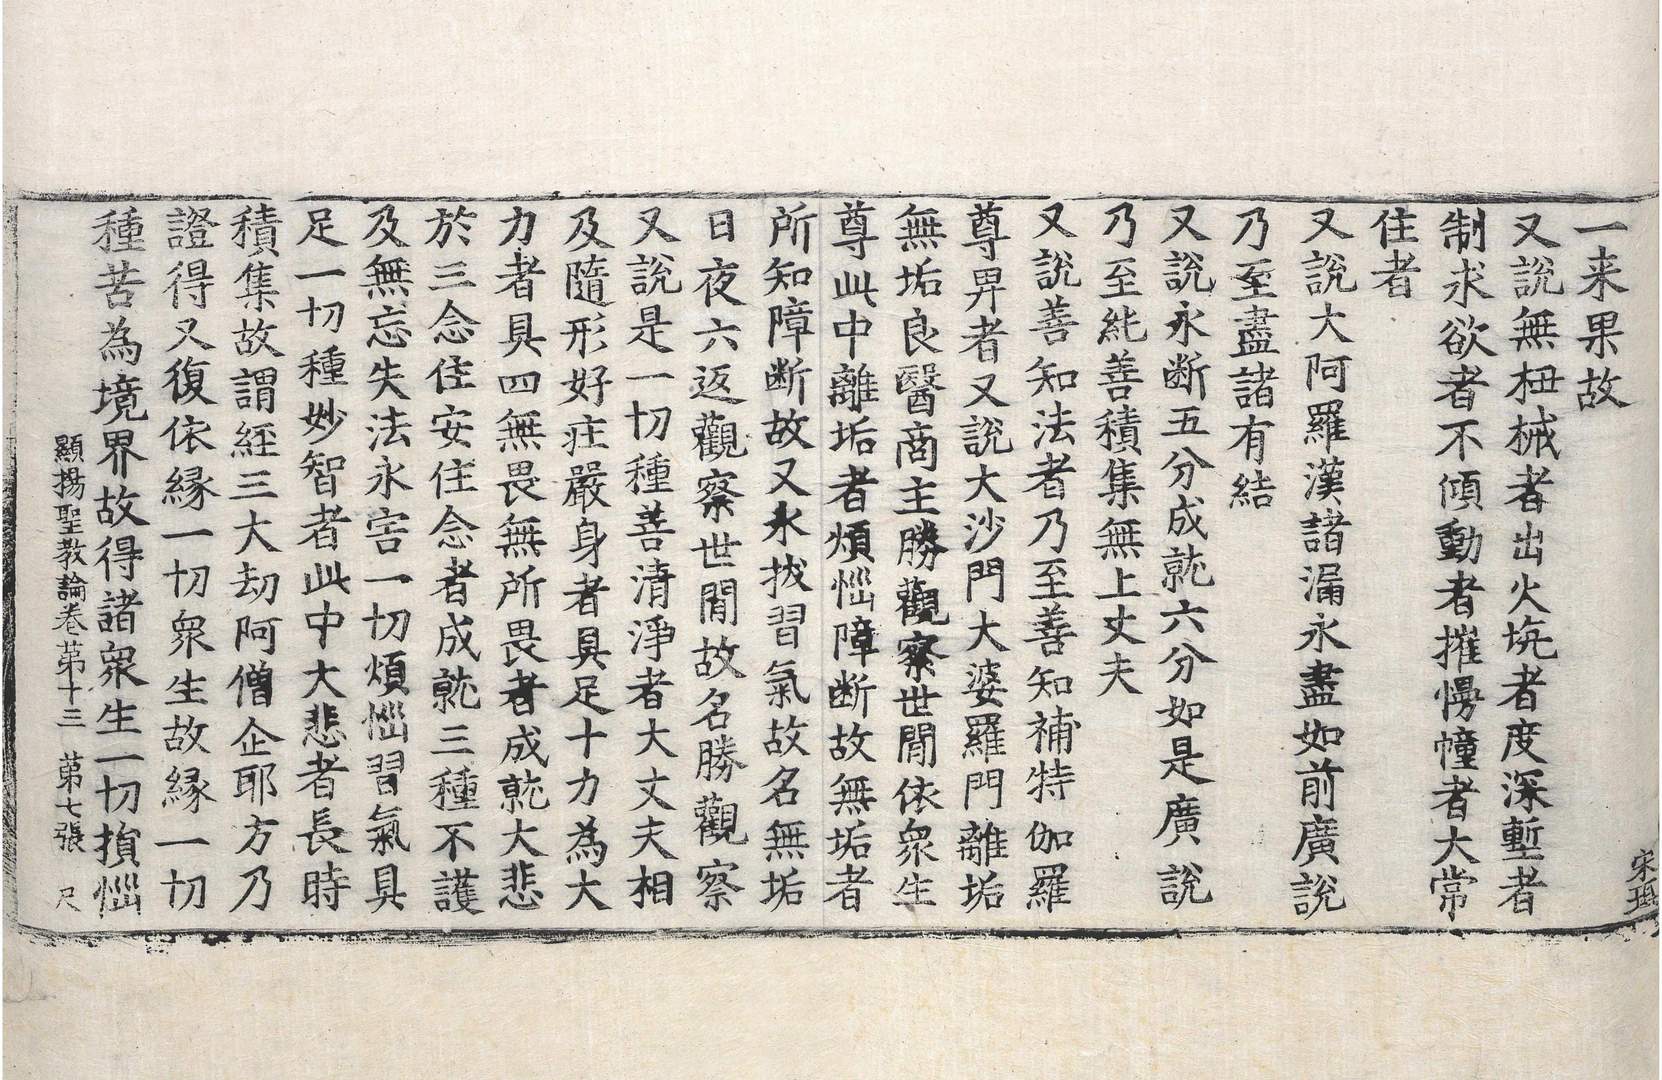 一来果故
又說無杻械者出火坑者度深塹者
制求欲者不傾動者摧慢幢者大常
住者
又說大阿羅漢諸漏永盡如前廣說
乃至盡諸有結
又說永断五分成就六分如是廣說
乃至純善積集無上丈夫
又說善知法者乃至善知補特伽羅
尊卑者又說大沙門大婆羅門離垢
無垢良醫商主勝觀察世閒依衆生
尊此中離垢者煩惱障断故無垢者
所知障断故又永拔習氣故名無垢
日夜六返觀察世閒故名勝觀察
又說是一切種善清淨者大丈夫相
及隨形好莊嚴身者具足十力為大
力者具四無畏無所畏者成就大悲
於三念住安住念者成就三種不護
及無忘失法永害一切煩惱習氣具
足一切種妙智者此中大悲者長時
積集故謂經三大劫阿僧企耶方乃
證得又復依緣一切衆生故緣一切
種苦為境界故得諸衆生一切損惱
顯揚聖教論卷第十三 第七張 尺